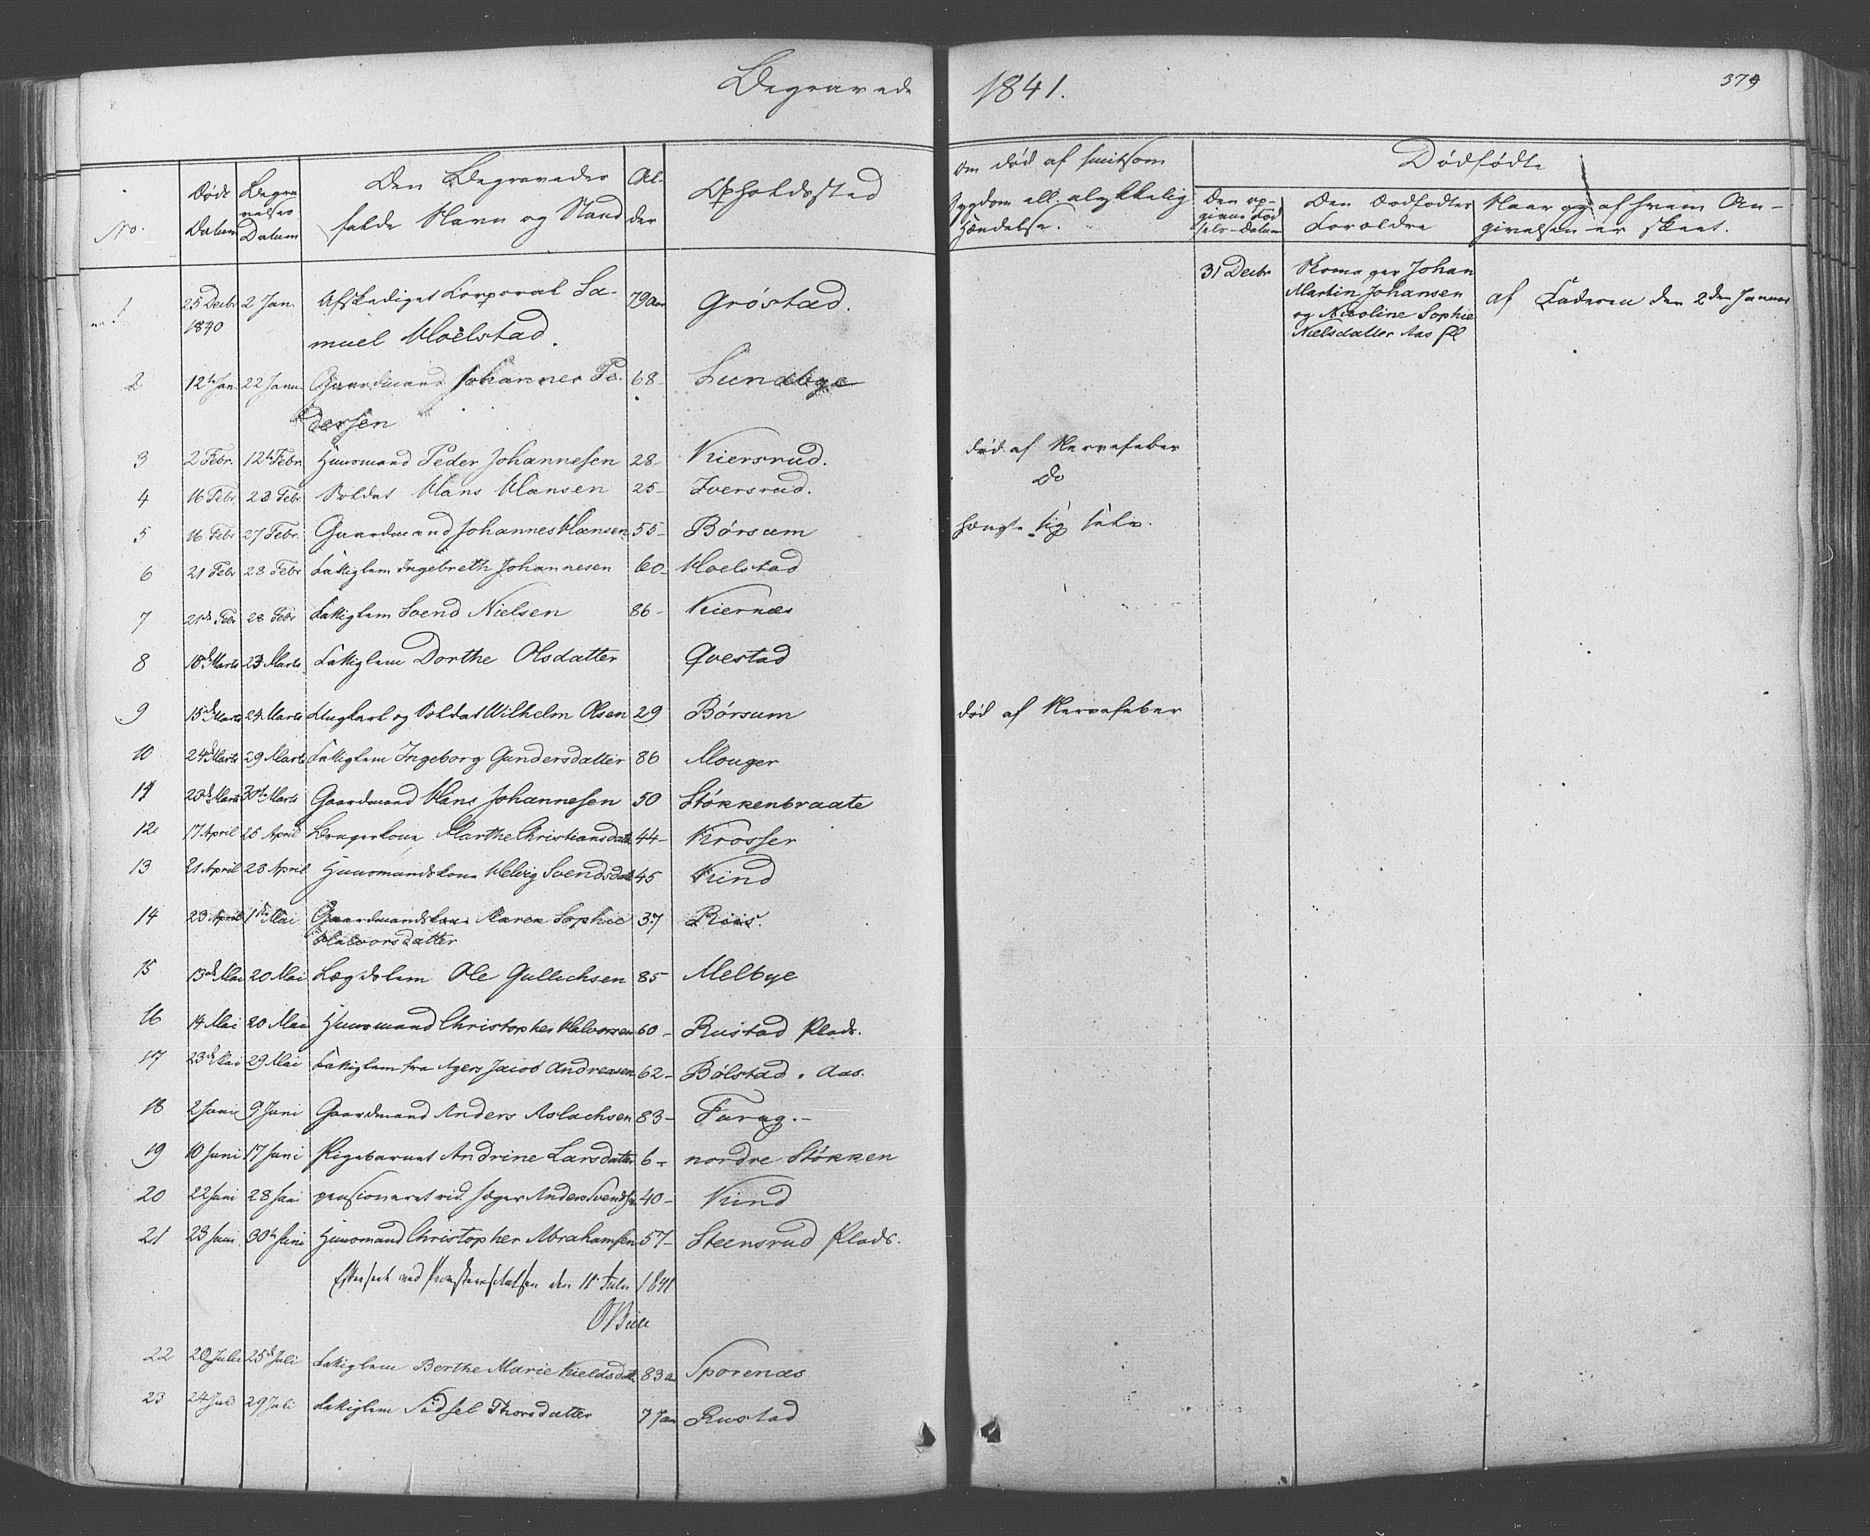 Begravede 1841. 379
No.
Døds Datum
Begravelses Datum
Den Begravedes fulde Navn og Stand
Alder
Opholdssted
Om død af smitsom Sygdom ell. ulykkelig Hændelse.
Dødfødte
Den opgivne Fødsels-Datum
Den Dødfødtes Forældre
Naar og af hvem Angivelsen er skeet.
1 25 Decbr 1840 2 Jan. Afskediget Corporal Samuel Hoelstad. 79 Aar Gröstad.
31 Decbr Skomager Johan Martin Johansen og Nicoline Sophie Nielsdatter Aas af Faderen den 2den Januar
2 12te Jan. 22 Janu. Gaardmand Johannes Pedersen 68 - Sundbye
3 2 Febr. 12te Febr. Huusmand Peder Johannesen 28 - Kiersrud. død af Nervefeber
4 16 Febr 28 Febr. Soldat Hans Hansen 25 - Iversrud. Do
5 16 Febr 27 Febr. Gaardmand Johannes Hansen 55 - Börsum hængte sig selv.
6 21 Febr 28 Febr Fattiglem Ingebreth Johannesen 60 - Hoelstad
7 21de Febr 28 Febr Fattiglem Svend Nielsen 86 - Kiernæs
8 18de Marts 23 Marts Fattiglem Dorthe Olsdatter Qvestad
9 15de Marts 24 Marts Ungkarl og Soldat Wilhelm Olsen 29 Börsum død af Nervefeber
10 24de Marts 29 Marts Fattiglem Ingeborg Gundersdatter 86 Mouger
11 23de Marts 30te Marts Gaardmand Hans Johannesen 50 Stökkenbraate
12 17 April 25 April Brugerkone Marthe Christiansdatt 44 - Krosser
13 21 April 28 April Huusmandskone Helvig Svendsdatt 45 Kind
14 23 April 1ste Mai Gaardmandskone Maren Sophie Halvorsdatter 37 Riis.
15 13de Mai 20 Mai Lægdslem Ole Gullichsen 85 Melbye
16 14 Mai 20 Mai Huusmand Christopher Halvorsen 60 - Rustad Plads.
17 23de Mai 29 Mai Fattiglem fra Agers Jacob Andreasen 62 - Bölstad. Aas.
18 2 Juni 9 Juni Gaardmand Anders Aslachsen 83 - Farug. -
19 10 Juni 17 Juni Pigebarnet Andrine Larsdatter 6 - nordre Stökken
20 22 Juni 28 Juni pensioneret rid. Jæger Anders Svendsen 40 - Kind
21 23 Juni. 30te Juni Huusmand Christopher Abrahamsen 57 - Steensrud Plads.
Efterseet ved Provstevisitatsen den 11te Juli 1841
22 20 Juli 25de Juli Fattiglem Berthe Marie Kieldsdatt 83 a Sporenæs
23 24 Juli 29 Juli Fattiglem Sidsel Thorsdatter Rustad